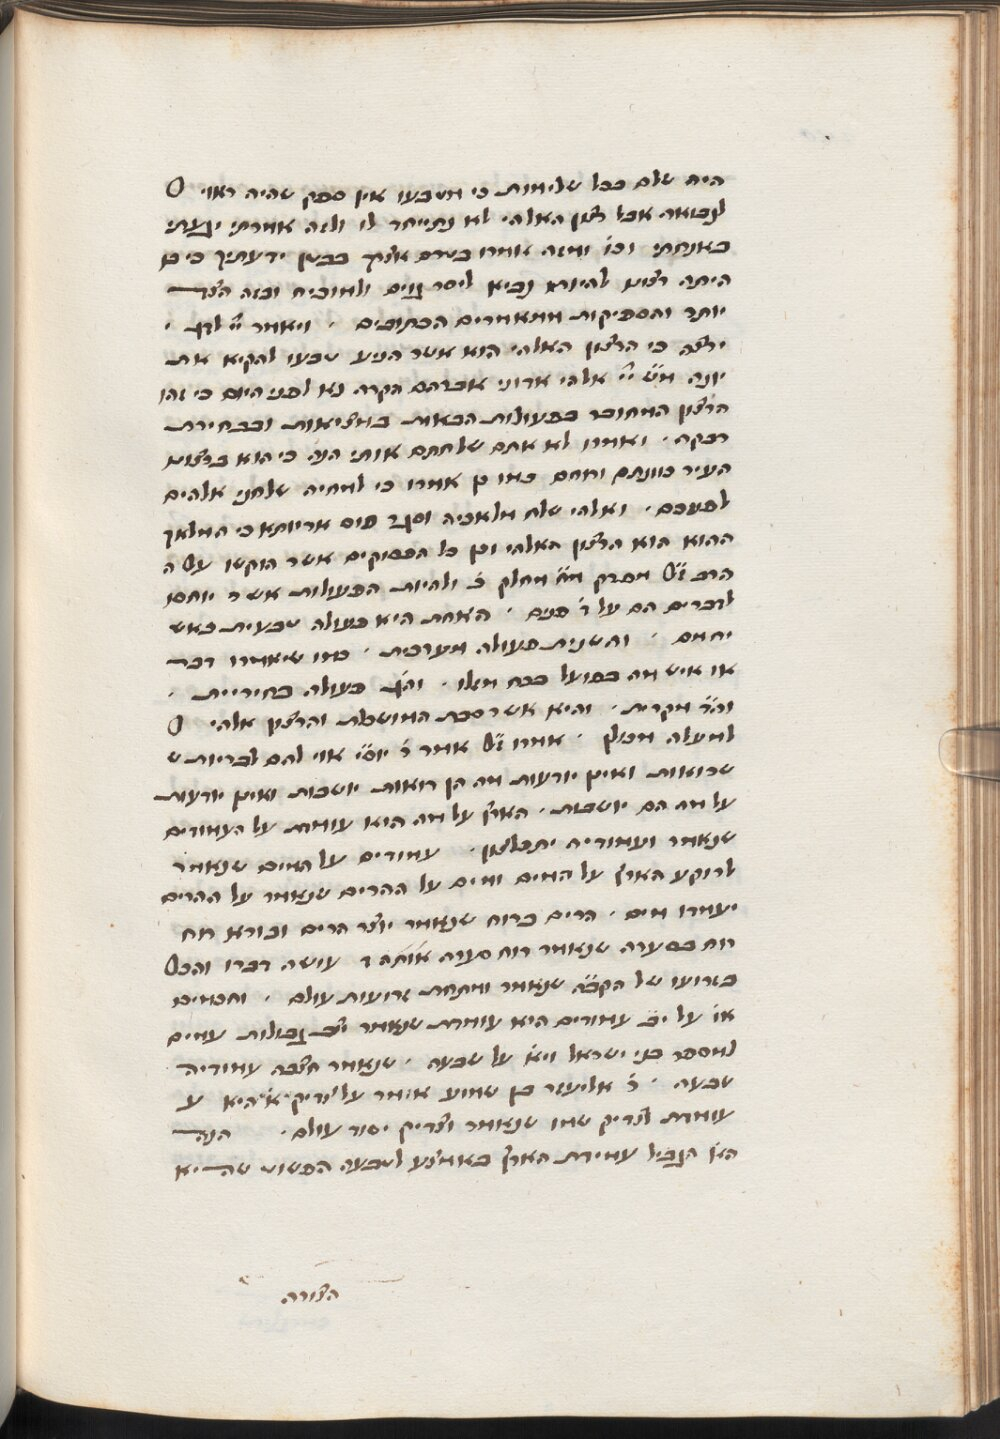 היה שלם בכל שלימות כי מטבעו אין ספק שהיה ראוי
לנבואה אבל רצון האלהי לא נתייחד לו ולזה אמרתי יגעתי
באנחתי וכו' ומזה אמרו בטרם אצרך בבטן ידעתיך כי כן
היתה רצונו להיותו נביא ליסר גוים ולהוכיח ובזה הצד
יותר והספיקות מתאמרים הכתובים ׳ ויאמר יי לדג ׳
ירצה כי הרצון האלהי הוא אשר הניע טבעו להקיא את
יונה יי אלהי אדוני אברהם הקרה נא לפני היום כי זהו
הרצון המחובר בפעולות הבאות במציאות ובבחירת
רבקה ׳ ואמרו לא אתם שלחתם אותי הנה כי הוא ברצונו
העיר כוונתם וחמם כמו כן אמרו כי למחיה שלחני אלהים
לפניכם ׳ ואלהי שלח מלאכיה וסגר פום אריותא כי המלאך
ההוא הוא הרצון האלהי וכן כל הפסוקים אשר הוקשו על ה
הרב ז״ל מפרק מ״ח מחלק ב׳ ולהיות הפעולות אשר יוחסו
לדברים הם על ד׳ פנים ׳ האחת היא פעולה טבעית כאש
יחמם ׳ והשנית פעולה מערבית ׳ כמו שיאמרו דבר
או איש מה בפועל בכח מזלו ׳ והג׳ פעולה בחיריית ׳
והד׳ מקרית ׳ והיא אשר סבת המושכלת והרצון אלהי
למעלה מכולן ׳ אמרו ז״ל אמר ר׳ יוסי אוי להם לבריות ש
שרואות ואינן יודעות מה הן רואות יושבות ואינן יודעות
על מה הם יושבות ׳ הארץ על מה הוא עומדת על העמודים
שנאמר ועמודיה יתפלצון ׳ עמודים על המים שנאמר
לרוקע הארץ על המים ומים על ההרים שנאמר על ההרים
יעמדו מים ׳ הרים ברוח שנאמר יוצר הרים ובורא רוח
רוח בסערה שנאמר רוח סערה עושה דברו והכל
בזרועו של הקב״ה שנאמר ומתחת זרועות עולם ׳ וחכמים
או׳ על י״ב עמודים היא עומדת שנאמר יצב גבולות עמים
למספר בני ישראל וי״א על שבעה ׳ שנאמר חצבה עמודיה
שבעה ׳ ר׳ אליעזר בן שמוע אומר על צדיק א׳ היא ע
עומדת צדיק שמו שנאמר וצדיק יסוד עולם ׳ הנה
האו׳ הגביל עמידת הארץ באמצע לטבעה הפשוט שהיא
הצורה